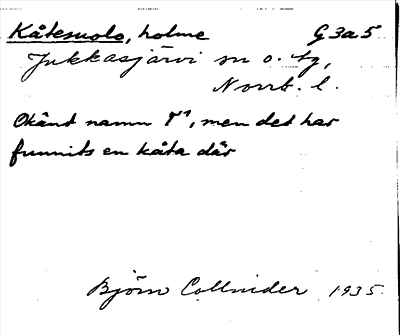 Kåtesuolo, holme G 3a 5
Jukkasjärvi sn o. tg,
Norrb. l.
Okänt namn, men det har
funnits en kåta där
Björn Collinder 1935